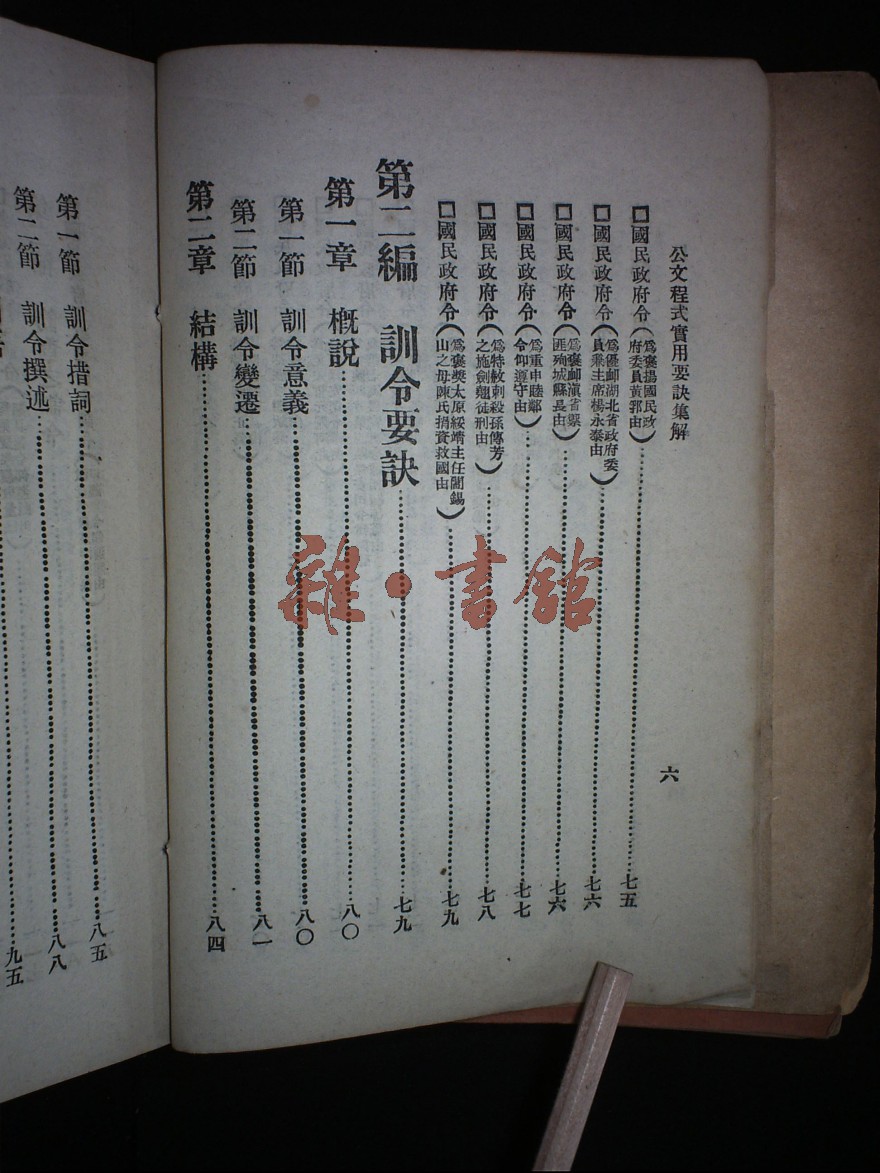 公文程式實用要訣集解
六
□國民政府令(爲褒揚國民政府委員黃郛由)……七五
□國民政府令(爲優邮湖北省政府委員兼主席楊永泰由)……七六
□國民政府令(爲褒邮滇省禦匪殉城縣長由)……七六
□國民政府令(爲重申睦鄰令仰遵守由)……七七
□國民政府令(爲特赦刺殺孫傳芳之施劍翹徒刑由)……七八
□國民政府令(爲褒奬太原綏靖主任閻錫山之母陳氏捐資救國由)……七九
第二編 訓令要訣……七九
第一章 槪說……八〇
第一節 訓令意義……八〇
第二節 訓令變遷……八一
第二章 結構……八四
第一節 訓令措詞……八五
第二節 訓令撰述……八八
九五
雜·書館